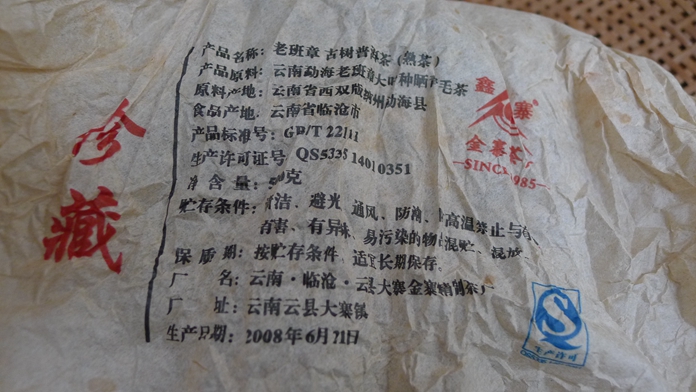 珍藏
产品名称：老班章 古树普洱茶（熟茶）
产品原料：云南勐海老班章大叶种晒青毛茶
原料产地：云南省西双版纳州勐海县
食品产地：云南省临沧市
产品标准号：GB/T 22111
生产许可证号 QS5335 14010351
净 含 量：克
贮存条件：清洁、避光 通风、防潮、高温禁止与
有害、有异味、易污染的物 混贮、混放
保 质 期：按贮存条件 适宜长期保存
厂 名：云南·临沧·云县大寨金寨精制茶厂
厂 址：云南云县大寨镇
生产日期：2008年6月
鑫寨
金寨茶厂
SINCE1985
生产许可